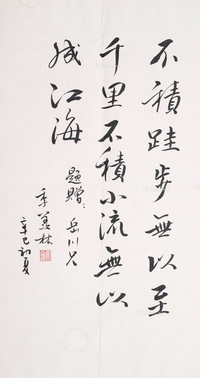 不積跬步無以至
千里不積小流無以
成江海
題贈：岳川兄
季羨林
辛巳初夏